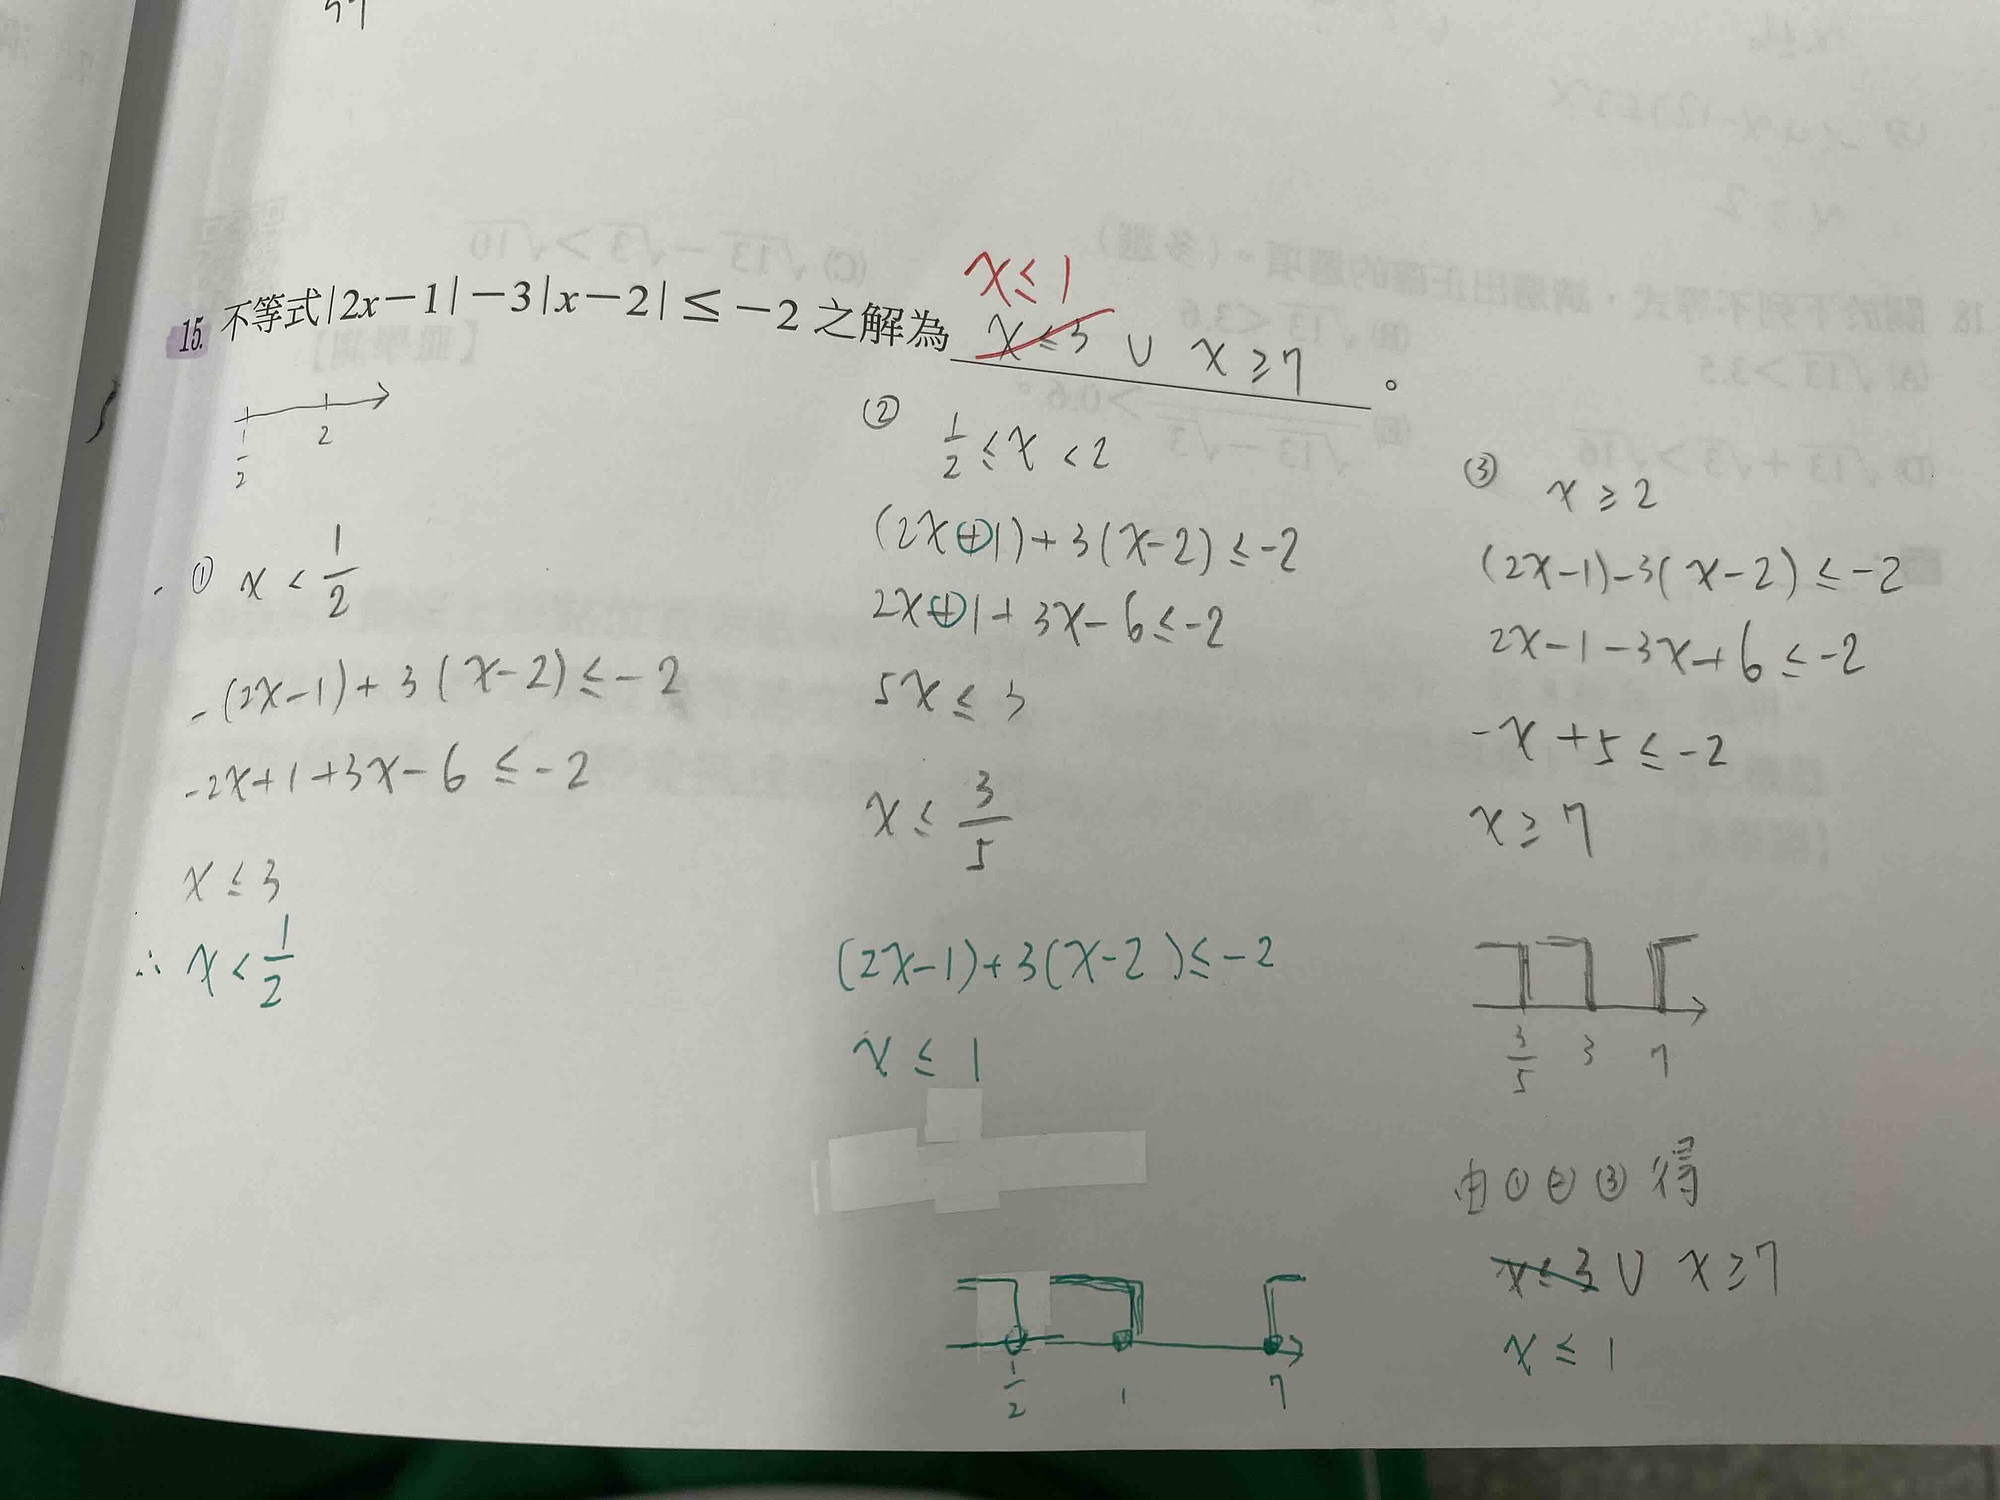 x≤1
15. 不等式|2x−1|−3|x−2|≤−2之解為 x≤3 ∪ x≥7 。
1/2 2
① x < 1/2
-(2x-1)+3(x-2)≤-2
-2x+1+3x-6≤-2
x≤3
∴ x<1/2
② 1/2 ≤ x < 2
(2x+1)+3(x-2)≤-2
2x+1+3x-6≤-2
5x≤3
x≤3/5
(2x-1)+3(x-2)≤-2
x≤1
1/2 1 7
③ x≥2
(2x-1)-3(x-2)≤-2
2x-1-3x+6≤-2
-x+5≤-2
x≥7
3/5 3 7
由①②③得
x≤3 ∪ x≥7
x≤1